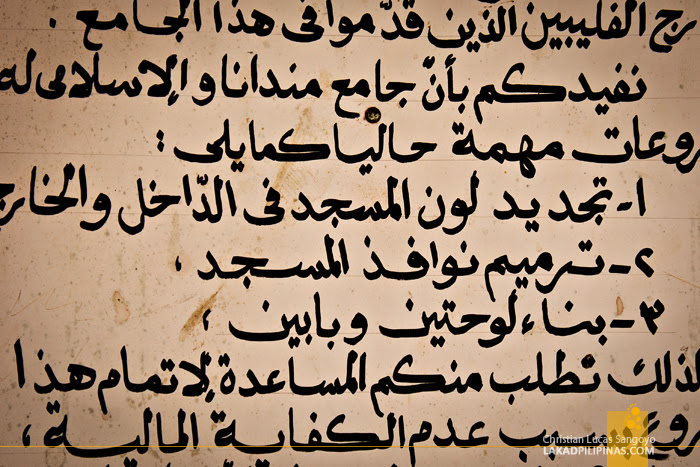 رج الفليبين الذين قدّموا فى هذا الجامع .
نفيدكم بأنّ جامع مندانا والإسلامى له
روعات مهمة حاليا كمايلى :
١ـ تجديد لون المسجد فى الدّاخل والخارج
٢ـ ترميم نوافذ المسجد ،
٣ـ بناء لوحتين وبابين ،
لذلك نطلب منكم المساعدة لإتمام هذا
روع بسبب عدم الكفاية المالية ،
Christian Lucas Sangoyo
LAKADPILIPINAS.COM